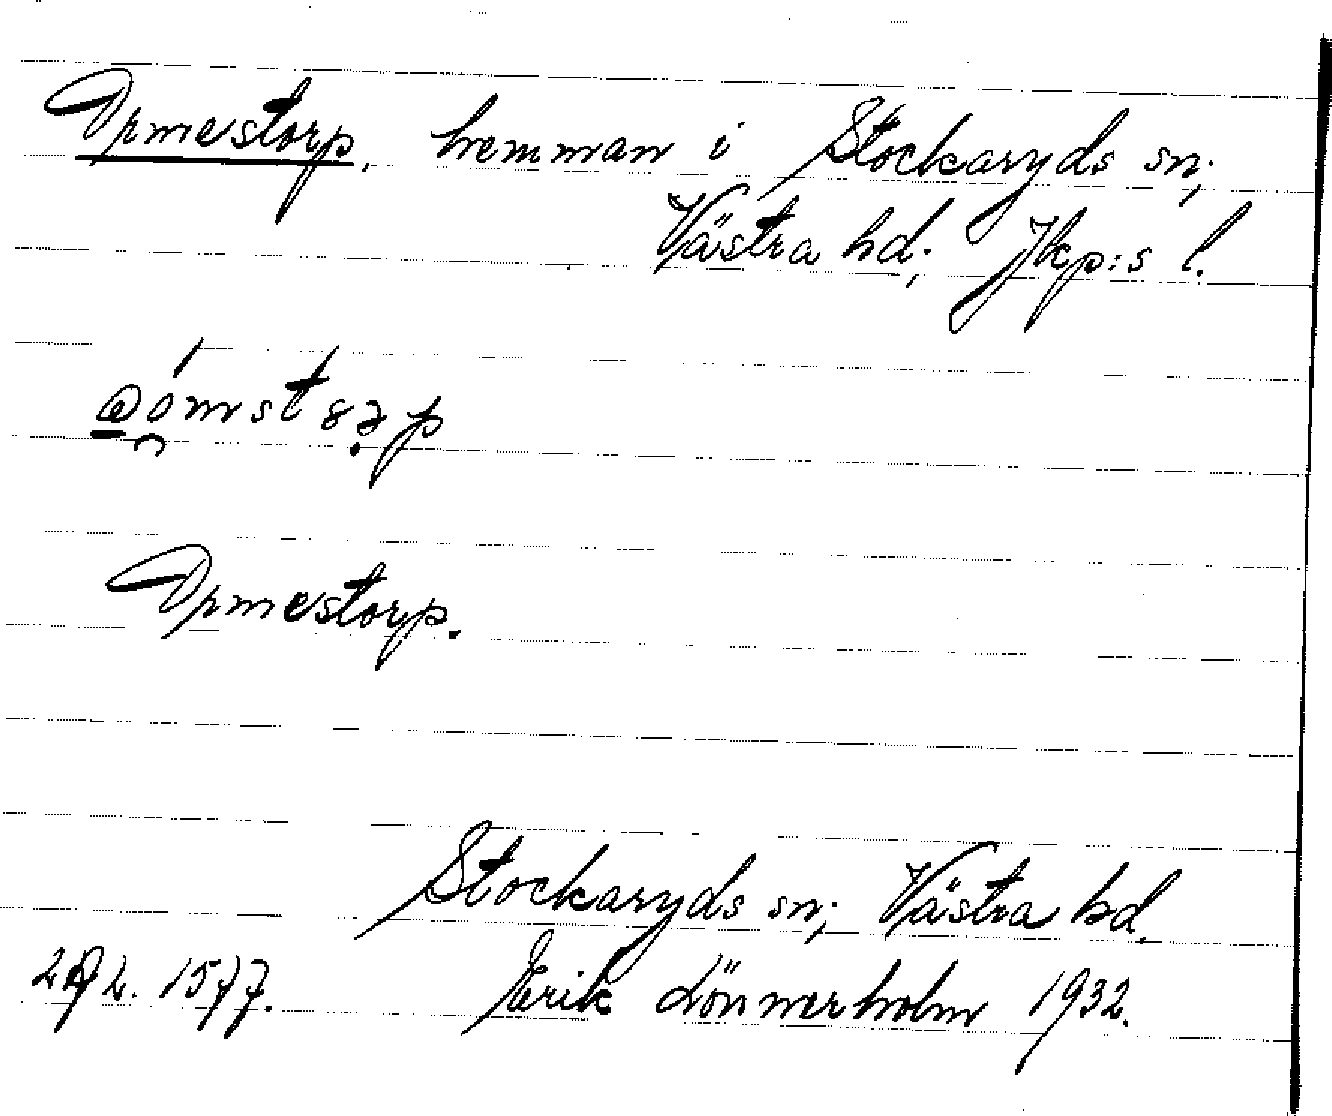 Ormestorp, hemman i Stockaryds sn;
Västra hd; Jkp:s l.
Ormestorp.
Stockaryds sn; Västra hd.
1577. Erik Lönnerholm 1932.